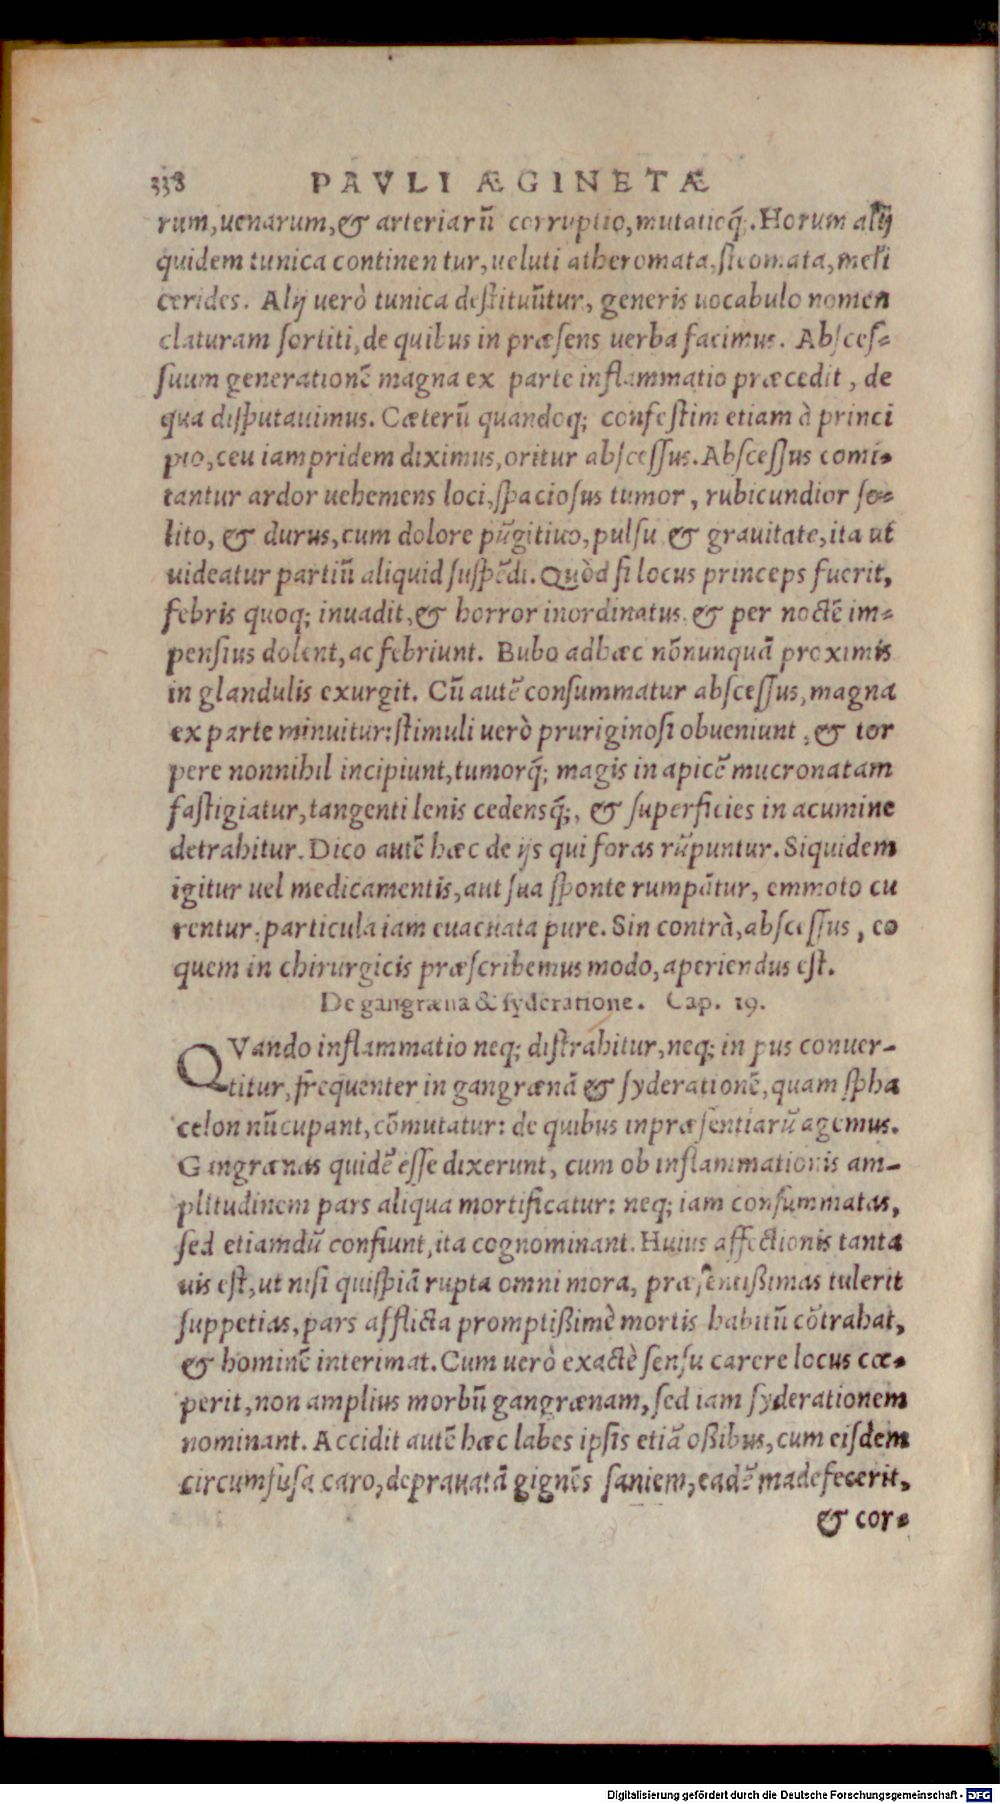 338 PAVLI ÆGINETÆ
rum, uenarum, & arteriarũ corruptio, mutatioq́;. Horum alij
quidem tunica continentur, ueluti atheromata, steomata, meli
cerides. Alij uerò tunica destituũtur, generis uocabulo nomen
claturam sortiti, de quibus in præsens uerba facimus. Absces=
suum generationẽ magna ex parte inflammatio præcedit, de
qua disputauimus. Cæterũ quandoq; confestim etiam à princi
pio, ceu iampridem diximus, oritur abscessus. Abscessus comi=
tantur ardor uehemens loci, spaciosus tumor, rubicundior so=
lito, & durus, cum dolore pũgitiuo, pulsu & grauitate, ita ut
uideatur partiũ aliquid suspẽdi. Quòd si locus princeps fuerit,
febris quoq; inuadit, & horror inordinatus. & per noctẽ im=
pensius dolent, ac febriunt. Bubo adhæc nõnunquã proximis
in glandulis exurgit. Cũ autẽ consummatur abscessus, magna
ex parte minuitur: stimuli uerò pruriginosi obueniunt, & tor
pere nonnihil incipiunt, tumorq́; magis in apicẽ mucronatam
fastigiatur, tangenti lenis cedensq́;, & superficies in acumine
detrahitur. Dico autẽ hæc de ijs qui foras rũpuntur. Siquidem
igitur uel medicamentis, aut sua sponte rumpãtur, emmoto cu
rentur, particula iam euacuata pure. Sin contrà, abscessus, eo
quem in chirurgicis præscribemus modo, aperiendus est.
De gangræna & syderatione. Cap. 19.
QVando inflammatio neq; distrahitur, neq; in pus conuer-
titur, frequenter in gangrænã & syderationẽ, quam spha
celon nũcupant, cõmutatur: de quibus inpræsentiarũ agemus.
Gangrænas quidẽ esse dixerunt, cum ob inflammationis am-
plitudinem pars aliqua mortificatur: neq; iam consummatas,
sed etiamdũ confiunt, ita cognominant. Huius affectionis tanta
uis est, ut nisi quispiã rupta omni mora, præsentißimas tulerit
suppetias, pars afflicta promptißimè mortis habitũ cõtrahat,
& hominẽ interimat. Cum uerò exactè sensu carere locus cœ=
perit, non amplius morbũ gangrænam, sed iam syderationem
nominant. Accidit autẽ hæc labes ipsis etiã oßibus, cum eisdem
circumfusa caro, deprauatã gignẽs saniem, eadẽ madefecerit,
& cor=
Digitalisierung gefördert durch die Deutsche Forschungsgemeinschaft - DFG